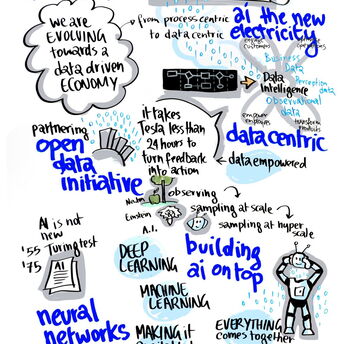 we are
EVOLVING
towards a
data driven
ECONOMY
from process centric
to data centric
ai the new
electricity
engage
customers
Business
Data
Data
Intelligence
Perception
data
Observational
data
empower
employees
transform
products
partnering
open
data
initiative
it takes
Tesla less than
24 hours to
turn feedback
into action
data centric
data empowered
Newton
observing
Einstein
sampling at scale
sampling at hyper
scale
A.I.
AI is not
new
'55 Turing test
'75
AI
DEEP
LEARNING
MACHINE
LEARNING
building
ai on top
neural
networks
MAKING it
EVERYTHING
comes together